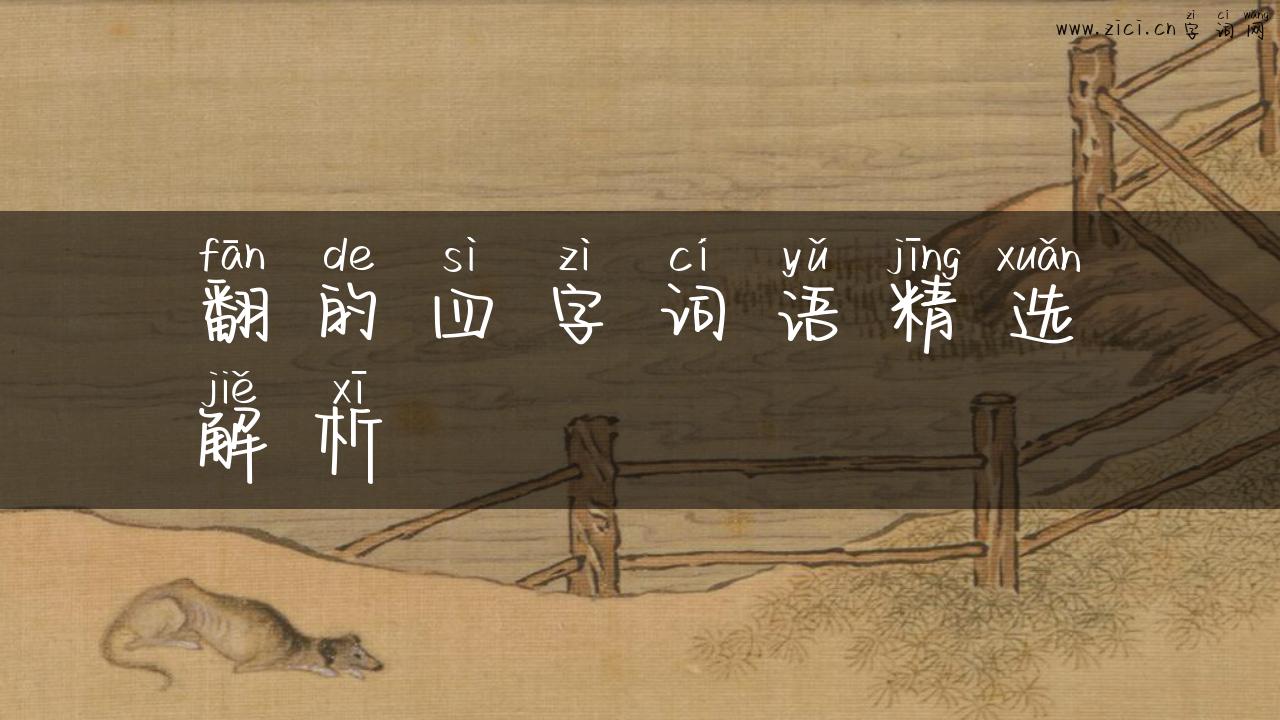 zi ci wang
www.zici.cn字词网
fān de sì zì cí yǔ jīng xuǎn
翻的四字词语精选
jiě xī
解析